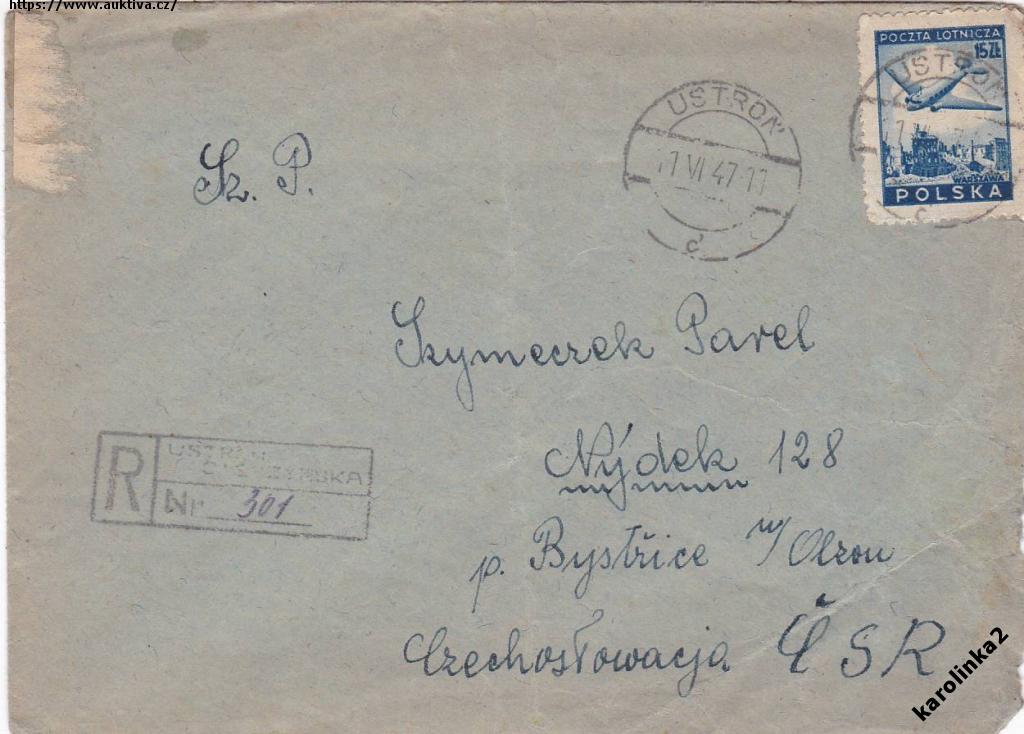 https://www.auktiva.cz/
POCZTA LOTNICZA
15ZŁ
WARSZAWA
POLSKA
USTROŃ
VI 47-11
c
USTROŃ
c
Sz. P.
Szymeczek Pavel
Nýdek 128
p. Bystřice n/Olzou
Czechosłowacja ČSR
R
USTROŃ
CIESZYŃSKA
Nr 301
karolinka2